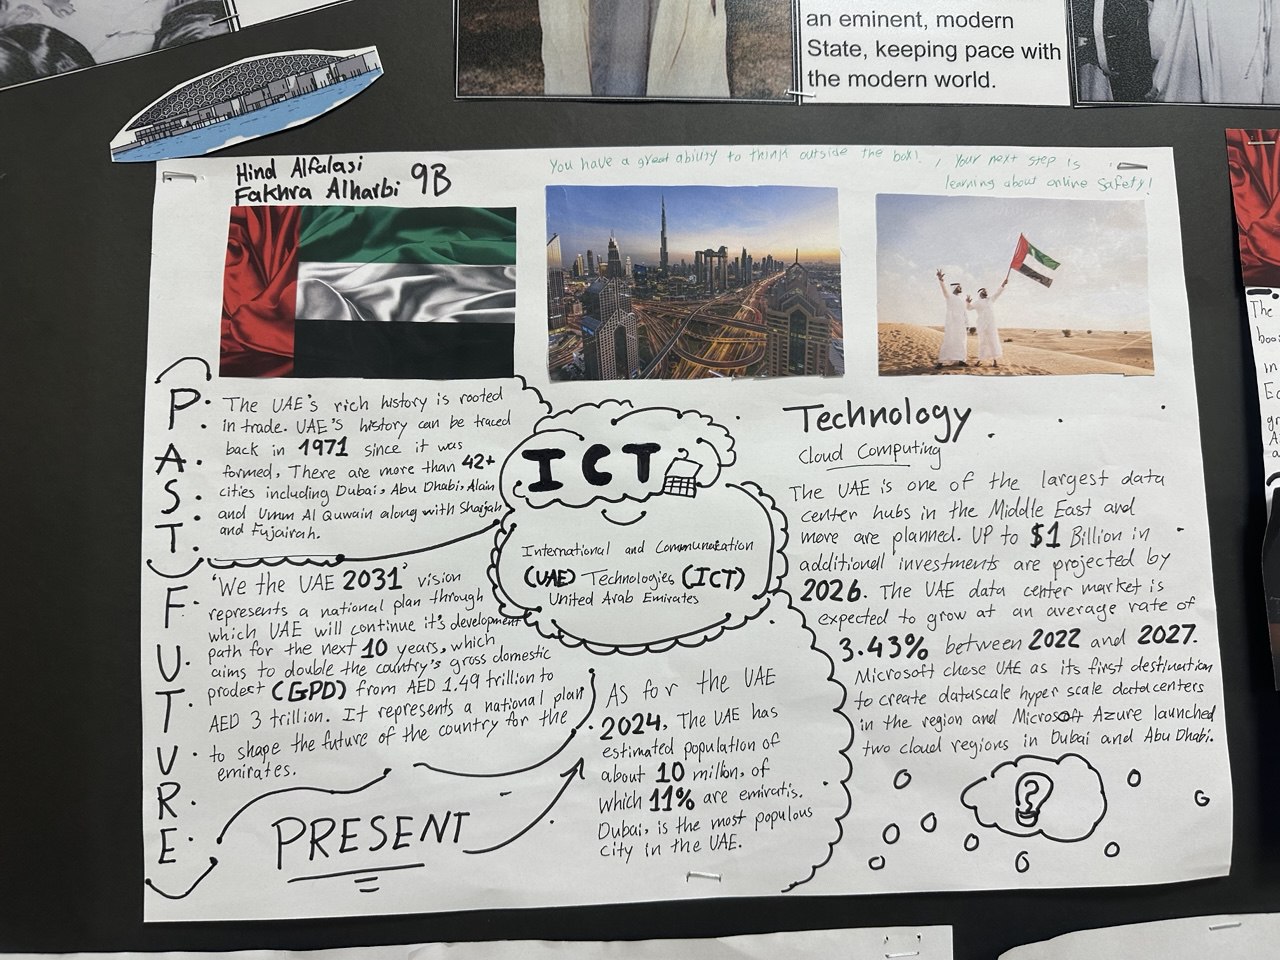 an eminent, modern
State, keeping pace with
the modern world.
Hind Alfalasi
Fakhra Alharbi 9B
You have a great ability to think outside the box!, Your next step is
learning about online safety!
PAST
The UAE's rich history is rooted
in trade. UAE's history can be traced
back in 1971 since it was
formed, There are more than 42+
cities including Dubai, Abu Dhabi, Alain
and Umm Al Quwain along with Sharjah
and Fujairah.
FUTURE
'We the UAE 2031' vision
represents a national plan through
which UAE will continue it's development
path for the next 10 years, which
aims to double the country's gross domestic
prodect (GPD) from AED 1.49 trillion to
AED 3 trillion. It represents a national plan
to shape the future of the country for the
emirates.
PRESENT
ICT
International and Communication
(UAE) Technologies (ICT)
United Arab Emirates
As for the UAE
2024, The UAE has
estimated population of
about 10 millon, of
which 11% are emiratis.
Dubai, is the most populous
city in the UAE.
Technology
Cloud Computing
The UAE is one of the largest data
center hubs in the Middle East and
more are planned. UP to $1 Billion in
additionell investments are projected by
2026. The UAE data center market is
expected to grow at an average rate of
3.43% between 2022 and 2027.
Microsoft chose UAE as its first destination
to create datascale hyper scale datacenters
in the region and Microsoft Azure launched
two cloud regions in Dubai and Abu Dhabi.
G
The
in